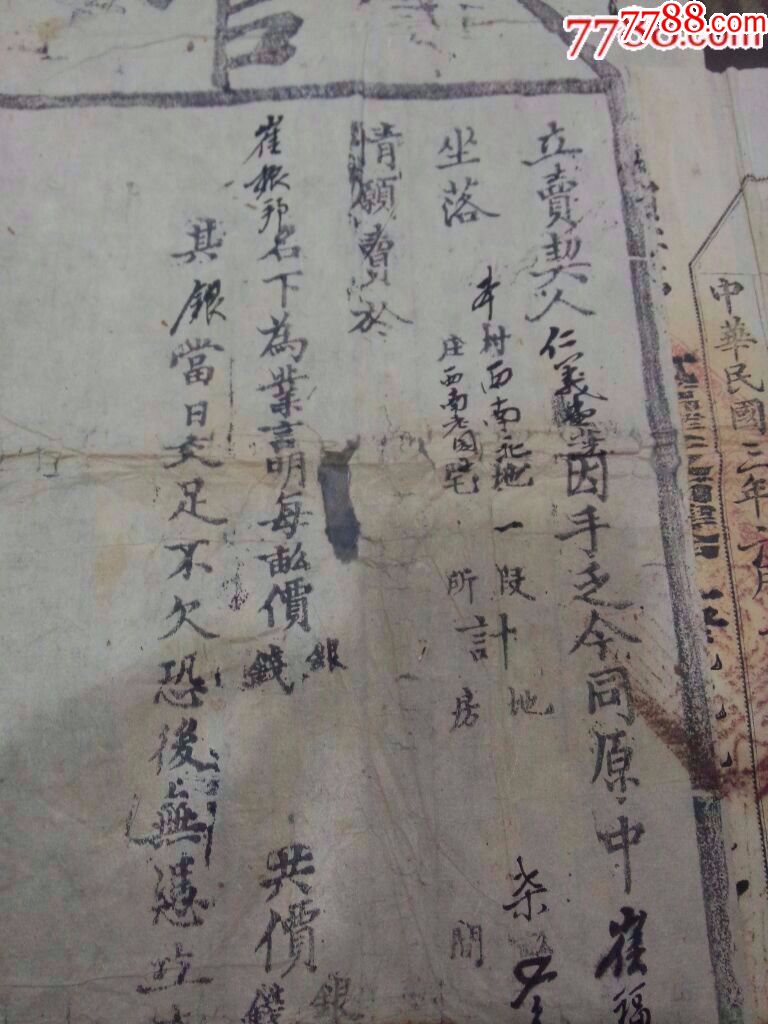 7788.com
7788.com
官
立賣契人仁義因手乏今同原中崔福
坐落 本村西南地一段計地
庄西南老園宅所 房 間
情願賣於
崔振邦名下為業言明每畝價銀錢 共價銀錢
其銀當日交足不欠恐後無憑立
中華民國三年六月